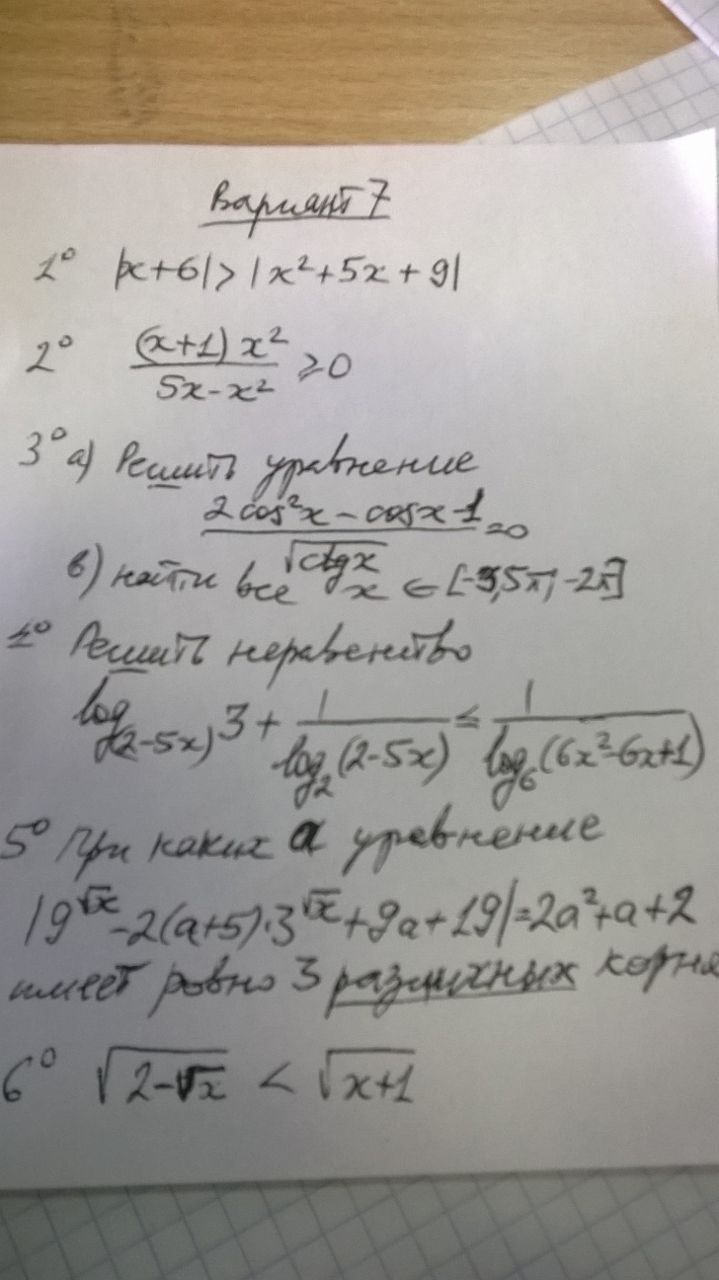 Вариант 7
1° |x+6| > |x²+5x+9|
2° (x+1) x² / 5x-x² ⩾ 0
3° а) Решить уравнение
2cos²x - cosx - 1 / √ctgx = 0
в) найти все x ∈ [-3,5π; -2π]
4° Решить неравенство
log₍₂₋₅ₓ₎ 3 + 1 / log₂(2-5x) ≤ 1 / log₆(6x²-6x+1)
5° При каких a уравнение
|9^√x - 2(a+5)·3^√x + 9a + 19| = 2a²+a+2
имеет ровно 3 различных корня
6° √(2-√x) < √(x+1)